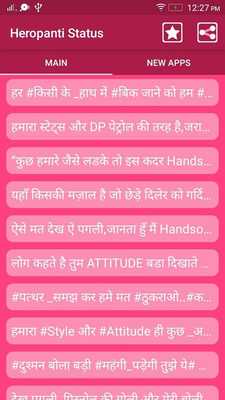 12:27 PM
Heropanti Status
MAIN
NEW APPS
हर #किसी के _हाथ में #बिक जाने को हम #...
हमारा स्टेट्स और DP पेट्रोल की तरह है,जरा...
"कुछ हमारे जैसे लडके तो इस कदर Hands...
यहाँ किसकी मज़ाल है जो छेड़े दिलेर को गर्दि...
ऐसे मत देख ऐ पगली,जानता हूँ मैं Handso...
लोग कहते है तुम ATTITUDE बडा दिखाते ...
#पत्थर _समझ कर हमे मत #ठुकराओ..#क...
हमारा #Style और #Attitude ही कुछ _अ...
#दुश्मन बोला बड़ी #महंगी_पड़ेगी तुझे ये# ...
देख पगली, पिस्तोल की गोली और मेरी बोली